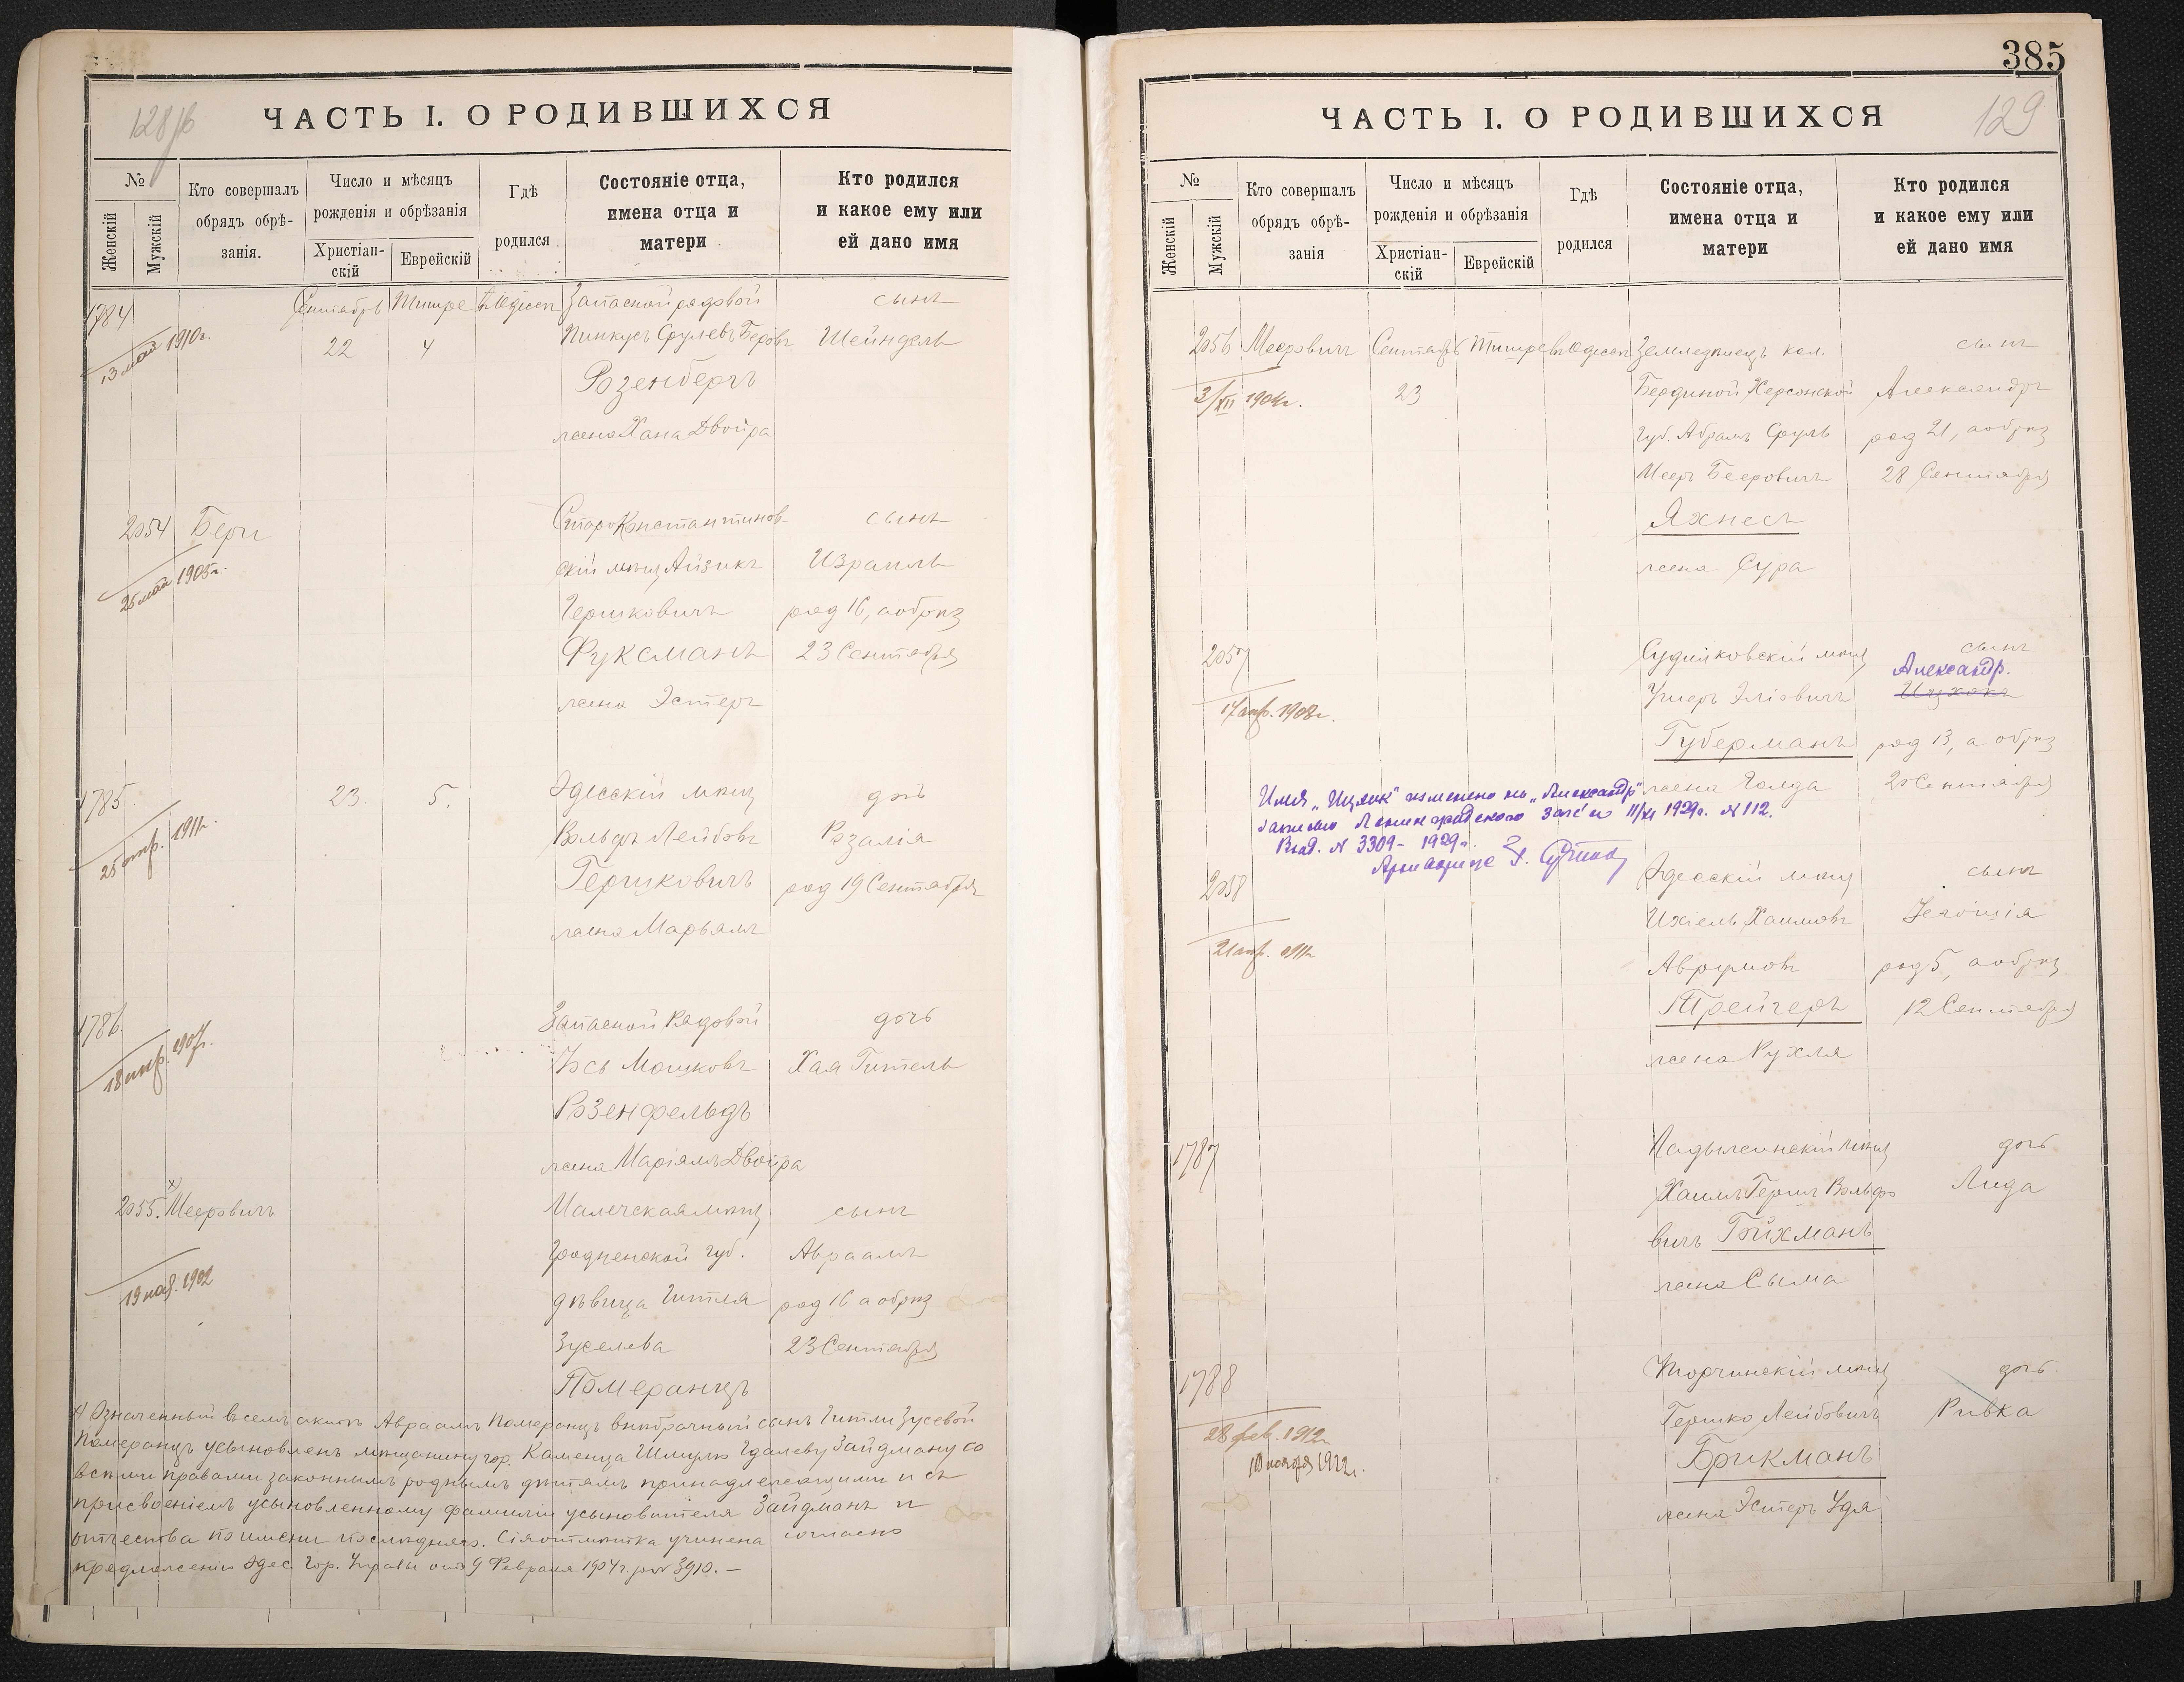 128/б
ЧАСТЬ I. О РОДИВШИХСЯ
№
Женскій
Мужскій
Кто совершалъ
обрядъ обрѣ-
занія.
Число и мѣсяцъ
рожденія и обрѣзанія
Христіан-
скій
Еврейскій
Гдѣ
родился
Состояніе отца,
имена отца и
матери
Кто родился
и какое ему или
ей дано имя
1784
13 май 1910г.
Сентябрь Тишре въ Одессѣ Запасной рядовой сынъ
22 4 Пинкусъ Срулевъ Беровъ Шейндель
Розенбергъ
жена Хана Двойра
2054 Бери Староконстантинов- сынъ
25 май 1905г.
скій мѣщ Айзикъ Израиль
Гершковичъ род 16, а обрѣз
Фуксманъ 23 Сентября
жена Эстеръ
1785 23. 5. Одесскій мѣщ дочь
Вольфъ Лейбовъ Розалія
Гершковичъ род 19 Сентября
жена Марьямъ
1786 Запасной Рядовой дочь
Мошковъ Хая Гитель
Розенфельдъ
жена Маріямъ Двойра
2055. х) Мееровичъ Малечская мѣщ сынъ
19 1902
Гродненской губ. Авраамъ
дѣвица Гитля род 16 а обрѣз
Зуселева 23 Сентября
Померанцъ
х) Означенный въ семъ актѣ Авраамъ Померанцъ внѣбрачный сынъ Гитли Зусевой
Померанцъ усыновленъ мѣщаниномъ гор. Каменца Шмулю Гдалеву Зайдману со
всѣми правами законнымъ роднымъ дѣтямъ принадлежащими и съ
присвоеніемъ усыновленному фамиліи усыновителя Зайдманъ и
отчества по имени послѣдняго. Сія отмѣтка учинена согласно
предложенію Одес. Гор. Управы отъ 9 Февраля 1904г. за № 3910. –
385
129
ЧАСТЬ I. О РОДИВШИХСЯ
№
Женскій
Мужскій
Кто совершалъ
обрядъ обрѣ-
занія
Число и мѣсяцъ
рожденія и обрѣзанія
Христіан-
скій
Еврейскій
Гдѣ
родился
Состояніе отца,
имена отца и
матери
Кто родился
и какое ему или
ей дано имя
2056 Мееровичъ Сентябрь Тишре въ Одессѣ Земледѣлецъ кол. сынъ
3/XII 1904г. 23 Херсонской Александръ
Губ. Абрамъ Сруль род 21, а обрѣз
Мееръ Бееровичъ 28 Сентября
Яхнесъ
жена Сура
2057 Судилковскій мѣщ сынъ
Александр.
Ушеръ Эліовичъ Ицхокъ
1908г.
Губерманъ род 13, а обрѣз
жена Голда 20 Сентября
Имя „Ицхок" изменено на „Александр"
записью Ленинградского Загса 11/XI 1929г. № 112.
Вход. № 3309 – 1929г.
2058 Одесскій мѣщ сынъ
Ихіель Хаимовъ
1911г.
Аврумовъ род 5, а обрѣз
Трейгеръ 12 Сентября
жена Рухля
1787 Ладыжинскій мѣщ дочь
Хаимъ Гершъ Вольфо Лида
вичъ Гойхманъ
жена Сыма
1788 Торчинскій мѣщ дочь
28 фев. 1912г. Гершко Лейбовичъ Ривка
10 ноября 1922г. Брикманъ
жена Эстеръ Удя